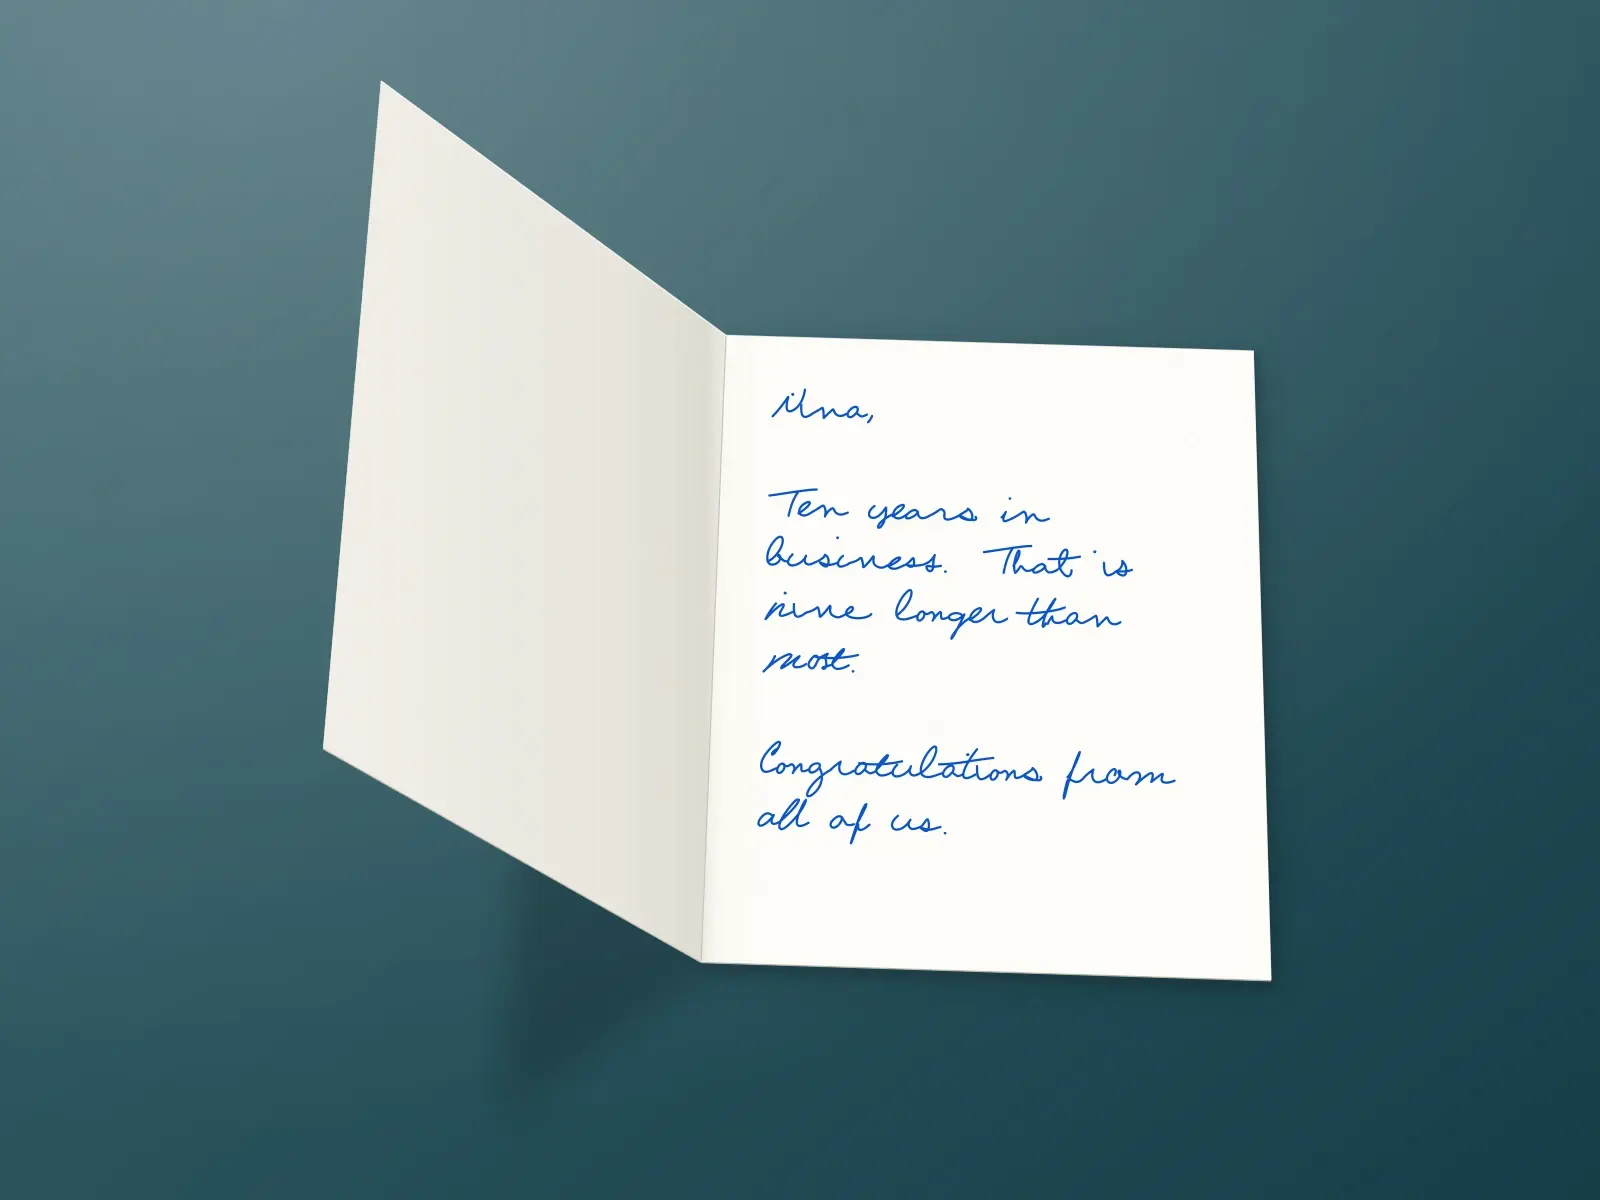 Una,
Ten years in
business. That is
nine longer than
most.
Congratulations from
all of us.